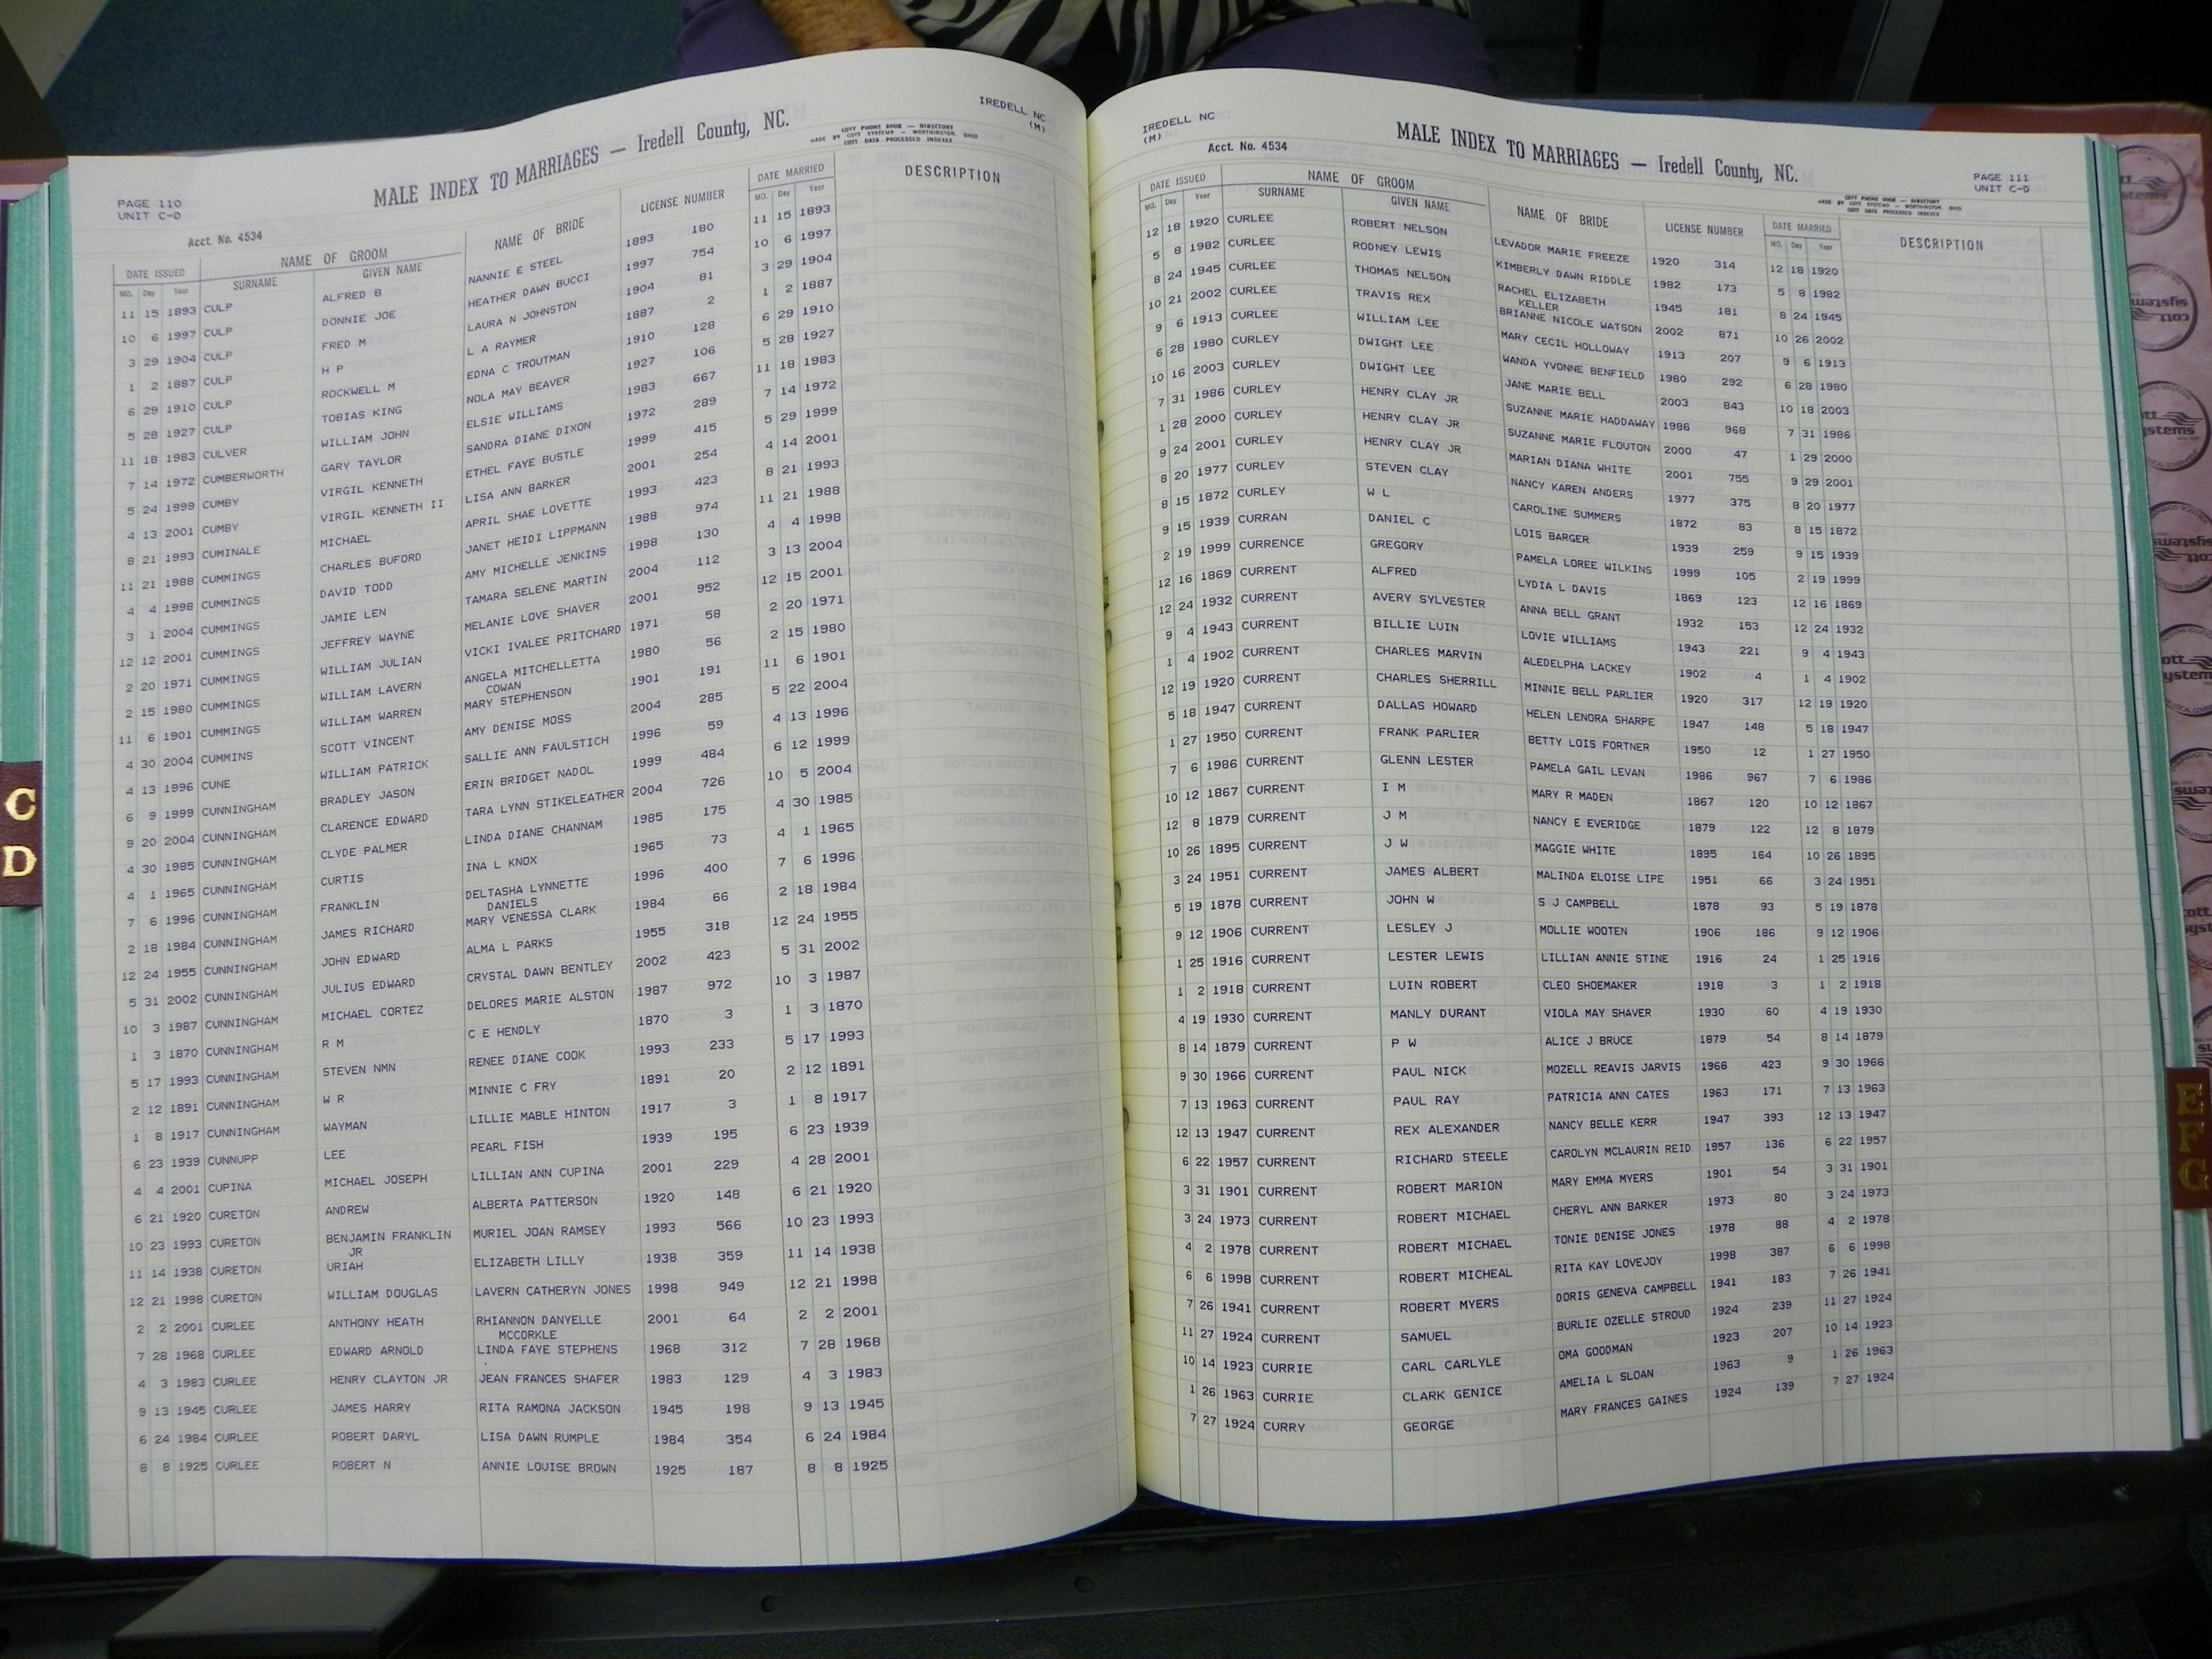 IREDELL NC
(M)
MALE INDEX TO MARRIAGES — Iredell County, NC.
MADE BY COTT PHONE BOOK — DIRECTORY
COTT SYSTEMS — WORTHINGTON, OHIO
COTT DATA PROCESSED INDEXES
PAGE 110
UNIT C-D
Acct. No. 4534
DATE ISSUED NAME OF GROOM NAME OF BRIDE LICENSE NUMBER DATE MARRIED DESCRIPTION
MO. Day Year SURNAME GIVEN NAME MO. Day Year
11 15 1893 CULP ALFRED B NANNIE E STEEL 1893 180 11 15 1893
10 6 1997 CULP DONNIE JOE HEATHER DAWN BUCCI 1997 754 10 6 1997
3 29 1904 CULP FRED M LAURA N JOHNSTON 1904 81 3 29 1904
1 2 1887 CULP H P L A RAYMER 1887 2 1 2 1887
6 29 1910 CULP ROCKWELL M EDNA C TROUTMAN 1910 128 6 29 1910
5 28 1927 CULP TOBIAS KING NOLA MAY BEAVER 1927 106 5 28 1927
11 18 1983 CULVER WILLIAM JOHN ELSIE WILLIAMS 1983 667 11 18 1983
7 14 1972 CUMBERWORTH GARY TAYLOR SANDRA DIANE DIXON 1972 289 7 14 1972
5 24 1999 CUMBY VIRGIL KENNETH ETHEL FAYE BUSTLE 1999 415 5 29 1999
4 13 2001 CUMBY VIRGIL KENNETH II LISA ANN BARKER 2001 254 4 14 2001
8 21 1993 CUMINALE MICHAEL APRIL SHAE LOVETTE 1993 423 8 21 1993
11 21 1988 CUMMINGS CHARLES BUFORD JANET HEIDI LIPPMANN 1988 974 11 21 1988
4 4 1998 CUMMINGS DAVID TODD AMY MICHELLE JENKINS 1998 130 4 4 1998
3 1 2004 CUMMINGS JAMIE LEN TAMARA SELENE MARTIN 2004 112 3 13 2004
12 12 2001 CUMMINGS JEFFREY WAYNE MELANIE LOVE SHAVER 2001 952 12 15 2001
2 20 1971 CUMMINGS WILLIAM JULIAN VICKI IVALEE PRITCHARD 1971 58 2 20 1971
2 15 1980 CUMMINGS WILLIAM LAVERN ANGELA MITCHELLETTA 1980 56 2 15 1980
COWAN
11 6 1901 CUMMINGS WILLIAM WARREN MARY STEPHENSON 1901 191 11 6 1901
4 30 2004 CUMMINS SCOTT VINCENT AMY DENISE MOSS 2004 285 5 22 2004
4 13 1996 CUNE WILLIAM PATRICK SALLIE ANN FAULSTICH 1996 59 4 13 1996
6 9 1999 CUNNINGHAM BRADLEY JASON ERIN BRIDGET NADOL 1999 484 6 12 1999
9 20 2004 CUNNINGHAM CLARENCE EDWARD TARA LYNN STIKELEATHER 2004 726 10 5 2004
4 30 1985 CUNNINGHAM CLYDE PALMER LINDA DIANE CHANNAM 1985 175 4 30 1985
4 1 1965 CUNNINGHAM CURTIS INA L KNOX 1965 73 4 1 1965
7 6 1996 CUNNINGHAM FRANKLIN DELTASHA LYNNETTE 1996 400 7 6 1996
DANIELS
2 18 1984 CUNNINGHAM JAMES RICHARD MARY VENESSA CLARK 1984 66 2 18 1984
12 24 1955 CUNNINGHAM JOHN EDWARD ALMA L PARKS 1955 318 12 24 1955
5 31 2002 CUNNINGHAM JULIUS EDWARD CRYSTAL DAWN BENTLEY 2002 423 5 31 2002
10 3 1987 CUNNINGHAM MICHAEL CORTEZ DELORES MARIE ALSTON 1987 972 10 3 1987
1 3 1870 CUNNINGHAM R M C E HENDLY 1870 3 1 3 1870
5 17 1993 CUNNINGHAM STEVEN NMN RENEE DIANE COOK 1993 233 5 17 1993
2 12 1891 CUNNINGHAM W R MINNIE C FRY 1891 20 2 12 1891
1 8 1917 CUNNINGHAM WAYMAN LILLIE MABLE HINTON 1917 3 1 8 1917
6 23 1939 CUNNUPP LEE PEARL FISH 1939 195 6 23 1939
4 4 2001 CUPINA MICHAEL JOSEPH LILLIAN ANN CUPINA 2001 229 4 28 2001
6 21 1920 CURETON ANDREW ALBERTA PATTERSON 1920 148 6 21 1920
10 23 1993 CURETON BENJAMIN FRANKLIN MURIEL JOAN RAMSEY 1993 566 10 23 1993
JR
11 14 1938 CURETON URIAH ELIZABETH LILLY 1938 359 11 14 1938
12 21 1998 CURETON WILLIAM DOUGLAS LAVERN CATHERYN JONES 1998 949 12 21 1998
2 2 2001 CURLEE ANTHONY HEATH RHIANNON DANYELLE 2001 64 2 2 2001
MCCORKLE
7 28 1968 CURLEE EDWARD ARNOLD LINDA FAYE STEPHENS 1968 312 7 28 1968
4 3 1983 CURLEE HENRY CLAYTON JR JEAN FRANCES SHAFER 1983 129 4 3 1983
9 13 1945 CURLEE JAMES HARRY RITA RAMONA JACKSON 1945 198 9 13 1945
6 24 1984 CURLEE ROBERT DARYL LISA DAWN RUMPLE 1984 354 6 24 1984
8 8 1925 CURLEE ROBERT N ANNIE LOUISE BROWN 1925 187 8 8 1925
C
D
IREDELL NC
(M)
Acct. No. 4534
MALE INDEX TO MARRIAGES — Iredell County, NC.
MADE BY COTT PHONE BOOK — DIRECTORY
COTT SYSTEMS — WORTHINGTON, OHIO
COTT DATA PROCESSED INDEXES
PAGE 111
UNIT C-D
DATE ISSUED NAME OF GROOM NAME OF BRIDE LICENSE NUMBER DATE MARRIED DESCRIPTION
MO. Day Year SURNAME GIVEN NAME MO. Day Year
12 18 1920 CURLEE ROBERT NELSON LEVADOR MARIE FREEZE 1920 314 12 18 1920
5 8 1982 CURLEE RODNEY LEWIS KIMBERLY DAWN RIDDLE 1982 173 5 8 1982
8 24 1945 CURLEE THOMAS NELSON RACHEL ELIZABETH 1945 181 8 24 1945
KELLER
10 21 2002 CURLEE TRAVIS REX BRIANNE NICOLE WATSON 2002 871 10 26 2002
9 6 1913 CURLEE WILLIAM LEE MARY CECIL HOLLOWAY 1913 207 9 6 1913
6 28 1980 CURLEY DWIGHT LEE WANDA YVONNE BENFIELD 1980 292 6 28 1980
10 16 2003 CURLEY DWIGHT LEE JANE MARIE BELL 2003 843 10 18 2003
7 31 1986 CURLEY HENRY CLAY JR SUZANNE MARIE HADDAWAY 1986 968 7 31 1986
1 28 2000 CURLEY HENRY CLAY JR SUZANNE MARIE FLOUTON 2000 47 1 29 2000
9 24 2001 CURLEY HENRY CLAY JR MARIAN DIANA WHITE 2001 755 9 29 2001
8 20 1977 CURLEY STEVEN CLAY NANCY KAREN ANDERS 1977 375 8 20 1977
8 15 1872 CURLEY W L CAROLINE SUMMERS 1872 83 8 15 1872
9 15 1939 CURRAN DANIEL C LOIS BARGER 1939 259 9 15 1939
2 19 1999 CURRENCE GREGORY PAMELA LOREE WILKINS 1999 105 2 19 1999
12 16 1869 CURRENT ALFRED LYDIA L DAVIS 1869 123 12 16 1869
12 24 1932 CURRENT AVERY SYLVESTER ANNA BELL GRANT 1932 153 12 24 1932
9 4 1943 CURRENT BILLIE LUIN LOVIE WILLIAMS 1943 221 9 4 1943
1 4 1902 CURRENT CHARLES MARVIN ALEDELPHA LACKEY 1902 4 1 4 1902
12 19 1920 CURRENT CHARLES SHERRILL MINNIE BELL PARLIER 1920 317 12 19 1920
5 18 1947 CURRENT DALLAS HOWARD HELEN LENORA SHARPE 1947 148 5 18 1947
1 27 1950 CURRENT FRANK PARLIER BETTY LOIS FORTNER 1950 12 1 27 1950
7 6 1986 CURRENT GLENN LESTER PAMELA GAIL LEVAN 1986 967 7 6 1986
10 12 1867 CURRENT I M MARY R MADEN 1867 120 10 12 1867
12 8 1879 CURRENT J M NANCY E EVERIDGE 1879 122 12 8 1879
10 26 1895 CURRENT J W MAGGIE WHITE 1895 164 10 26 1895
3 24 1951 CURRENT JAMES ALBERT MALINDA ELOISE LIPE 1951 66 3 24 1951
5 19 1878 CURRENT JOHN W S J CAMPBELL 1878 93 5 19 1878
9 12 1906 CURRENT LESLEY J MOLLIE WOOTEN 1906 186 9 12 1906
1 25 1916 CURRENT LESTER LEWIS LILLIAN ANNIE STINE 1916 24 1 25 1916
1 2 1918 CURRENT LUIN ROBERT CLEO SHOEMAKER 1918 3 1 2 1918
4 19 1930 CURRENT MANLY DURANT VIOLA MAY SHAVER 1930 60 4 19 1930
8 14 1879 CURRENT P W ALICE J BRUCE 1879 54 8 14 1879
9 30 1966 CURRENT PAUL NICK MOZELL REAVIS JARVIS 1966 423 9 30 1966
7 13 1963 CURRENT PAUL RAY PATRICIA ANN CATES 1963 171 7 13 1963
12 13 1947 CURRENT REX ALEXANDER NANCY BELLE KERR 1947 393 12 13 1947
6 22 1957 CURRENT RICHARD STEELE CAROLYN MCLAURIN REID 1957 136 6 22 1957
3 31 1901 CURRENT ROBERT MARION MARY EMMA MYERS 1901 54 3 31 1901
3 24 1973 CURRENT ROBERT MICHAEL CHERYL ANN BARKER 1973 80 3 24 1973
4 2 1978 CURRENT ROBERT MICHAEL TONIE DENISE JONES 1978 88 4 2 1978
6 6 1998 CURRENT ROBERT MICHEAL RITA KAY LOVEJOY 1998 387 6 6 1998
7 26 1941 CURRENT ROBERT MYERS DORIS GENEVA CAMPBELL 1941 183 7 26 1941
11 27 1924 CURRENT SAMUEL BURLIE OZELLE STROUD 1924 239 11 27 1924
10 14 1923 CURRIE CARL CARLYLE OMA GOODMAN 1923 207 10 14 1923
1 26 1963 CURRIE CLARK GENICE AMELIA L SLOAN 1963 9 1 26 1963
7 27 1924 CURRY GEORGE MARY FRANCES GAINES 1924 139 7 27 1924
E
F
G